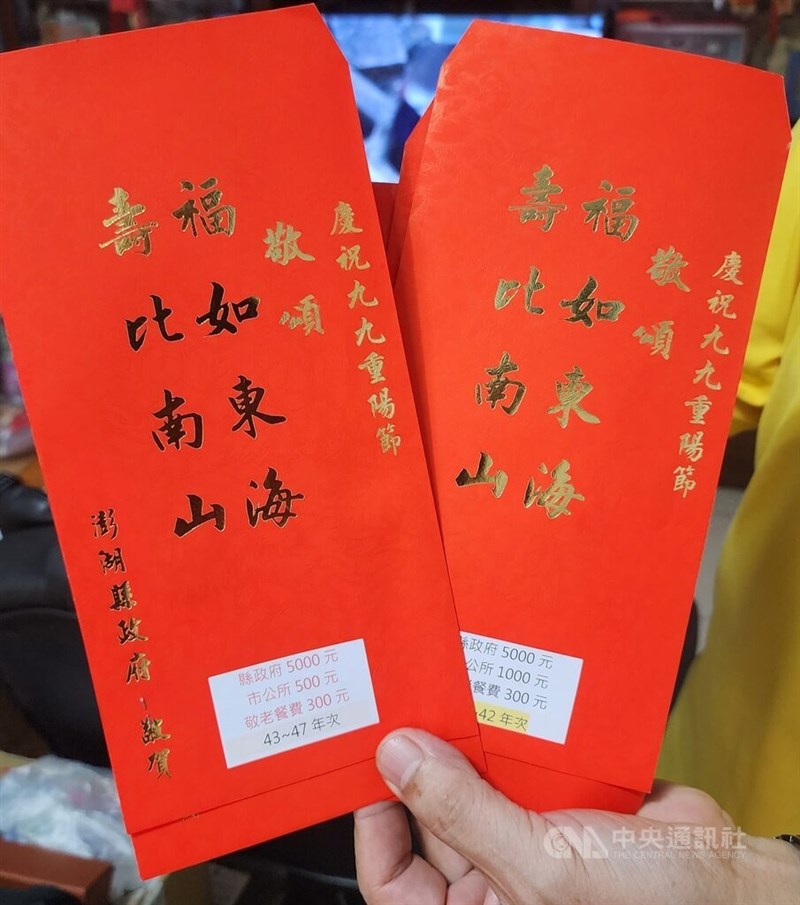 慶祝九九重陽節
敬頌
福如東海
壽比南山
澎湖縣政府敬賀
縣政府 5000 元
市公所 500 元
敬老餐費 300 元
43~47 年次
慶祝九九重陽節
敬頌
福如東海
壽比南山
縣政府 5000 元
公所 1000 元
餐費 300 元
~42 年次
CNA 中央通訊社
THE CENTRAL NEWS AGENCY